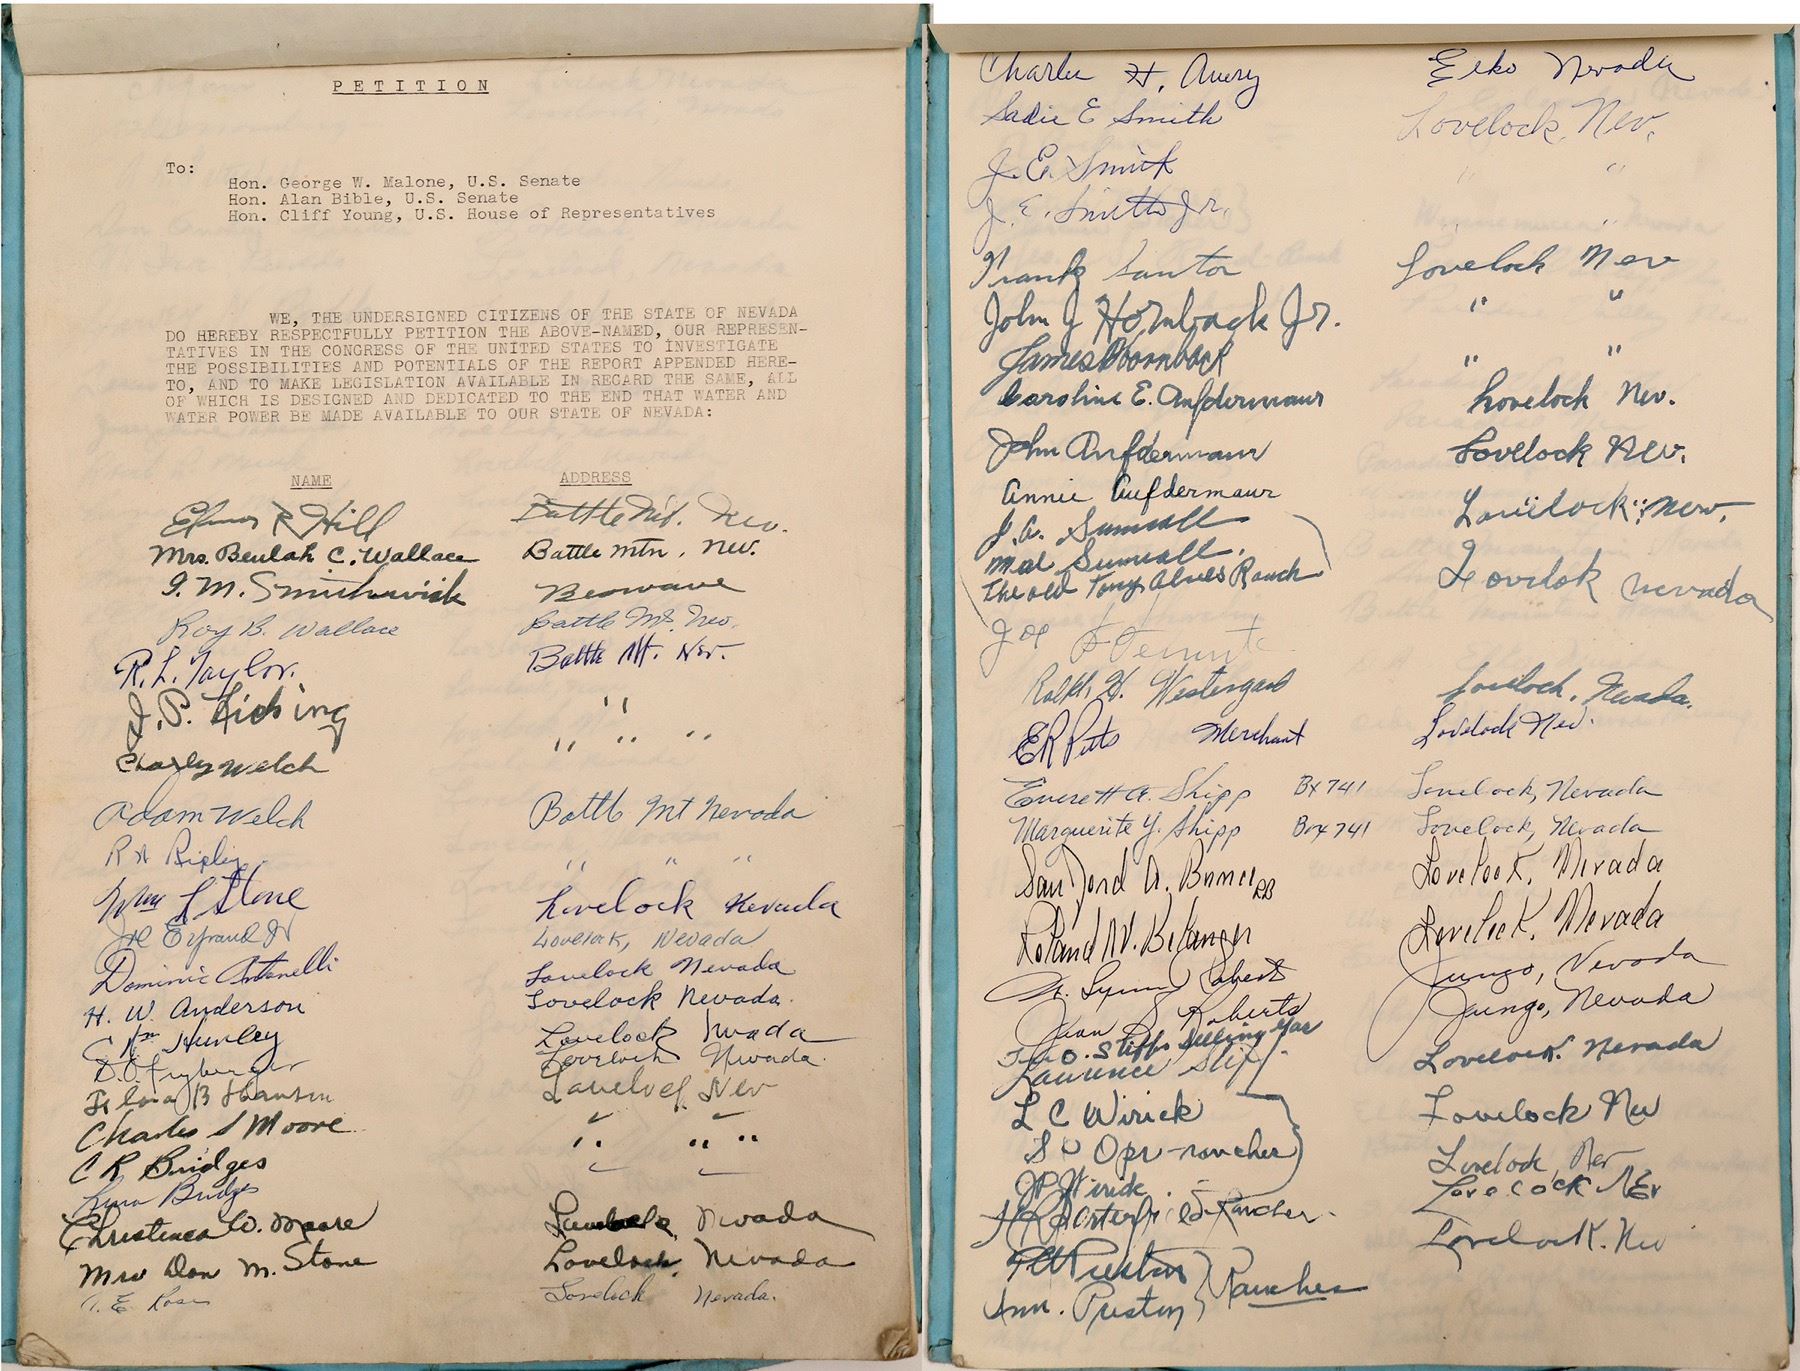 PETITION
To:
Hon. George W. Malone, U.S. Senate
Hon. Alan Bible, U.S. Senate
Hon. Cliff Young, U.S. House of Representatives
WE, THE UNDERSIGNED CITIZENS OF THE STATE OF NEVADA
DO HEREBY RESPECTFULLY PETITION THE ABOVE-NAMED, OUR REPRESEN-
TATIVES IN THE CONGRESS OF THE UNITED STATES TO INVESTIGATE
THE POSSIBILITIES AND POTENTIALS OF THE REPORT APPENDED HERE-
TO, AND TO MAKE LEGISLATION AVAILABLE IN REGARD THE SAME, ALL
OF WHICH IS DESIGNED AND DEDICATED TO THE END THAT WATER AND
WATER POWER BE MADE AVAILABLE TO OUR STATE OF NEVADA:
NAME ADDRESS
Elmer R Hill Battle Mt. Nev.
Mrs. Beulah C. Wallace Battle Mtn. Nev.
Beowawe
Roy B. Wallace Battle Mt. Nev.
R. L. Taylor. Battle Mt. Nev.
J. P. " "
Charley Welch " " "
Adam Welch Battle Mt Nevada
R A Ripley " " "
Wm L Stone Lovelock Nevada
Lovelock, Nevada
Dominic Antonelli Lovelock Nevada
H. W. Anderson Lovelock Nevada.
Hurley Lovelock Nevada
Lovelock Nevada.
B Hansen Lovelock Nev
Charles S Moore " "
C R Bridges " " "
Bridges
Christenea W. Moore Nevada
Mrs Don M. Stone Lovelock, Nevada
E. Ross Lovelock Nevada.
Charles H. Avery Elko Nevada
Sadie E Smith Lovelock, Nev.
J. E. Smith " "
J. E. Smith Jr. " "
Frank Santor Lovelock Nev
John J Hornback Jr. " "
James Hornback " "
Caroline E. Aufdermaur Lovelock Nev.
John Aufdermaur Lovelock Nev.
Annie Aufdermaur " "
J. A. Sumrall Lovelock Nev.
Mae Sumrall.
The old Tony Alves Ranch Lovelock Nevada
Joe
Ralph H. Westergard Lovelock, Nevada.
E R Pitts Merchant Lovelock Nev.
Everett A. Shipp Bx 741 Lovelock, Nevada
Marguerite Y. Shipp Box 741 Lovelock, Nevada
Sanford A. Lovelock, Nevada
Roland W. Belanger Lovelock, Nevada
Lynn Roberts Jungo, Nevada
Jean S Roberts Jungo, Nevada
Lovelock. Nevada
Laurence
L C Wirick Lovelock Nev
Opr-rancher Lovelock, Nev
J P Wirick. Lovelock Nev
Rancher. Lovelock. Nev
Preston Ranches
Preston